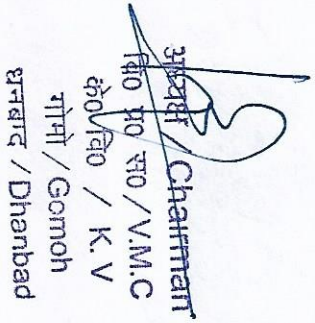 अध्यक्ष / Chairman
वि० प्र० स० / V.M.C
के० वि० / K.V
गोमो / Gomoh
धनबाद / Dhanbad